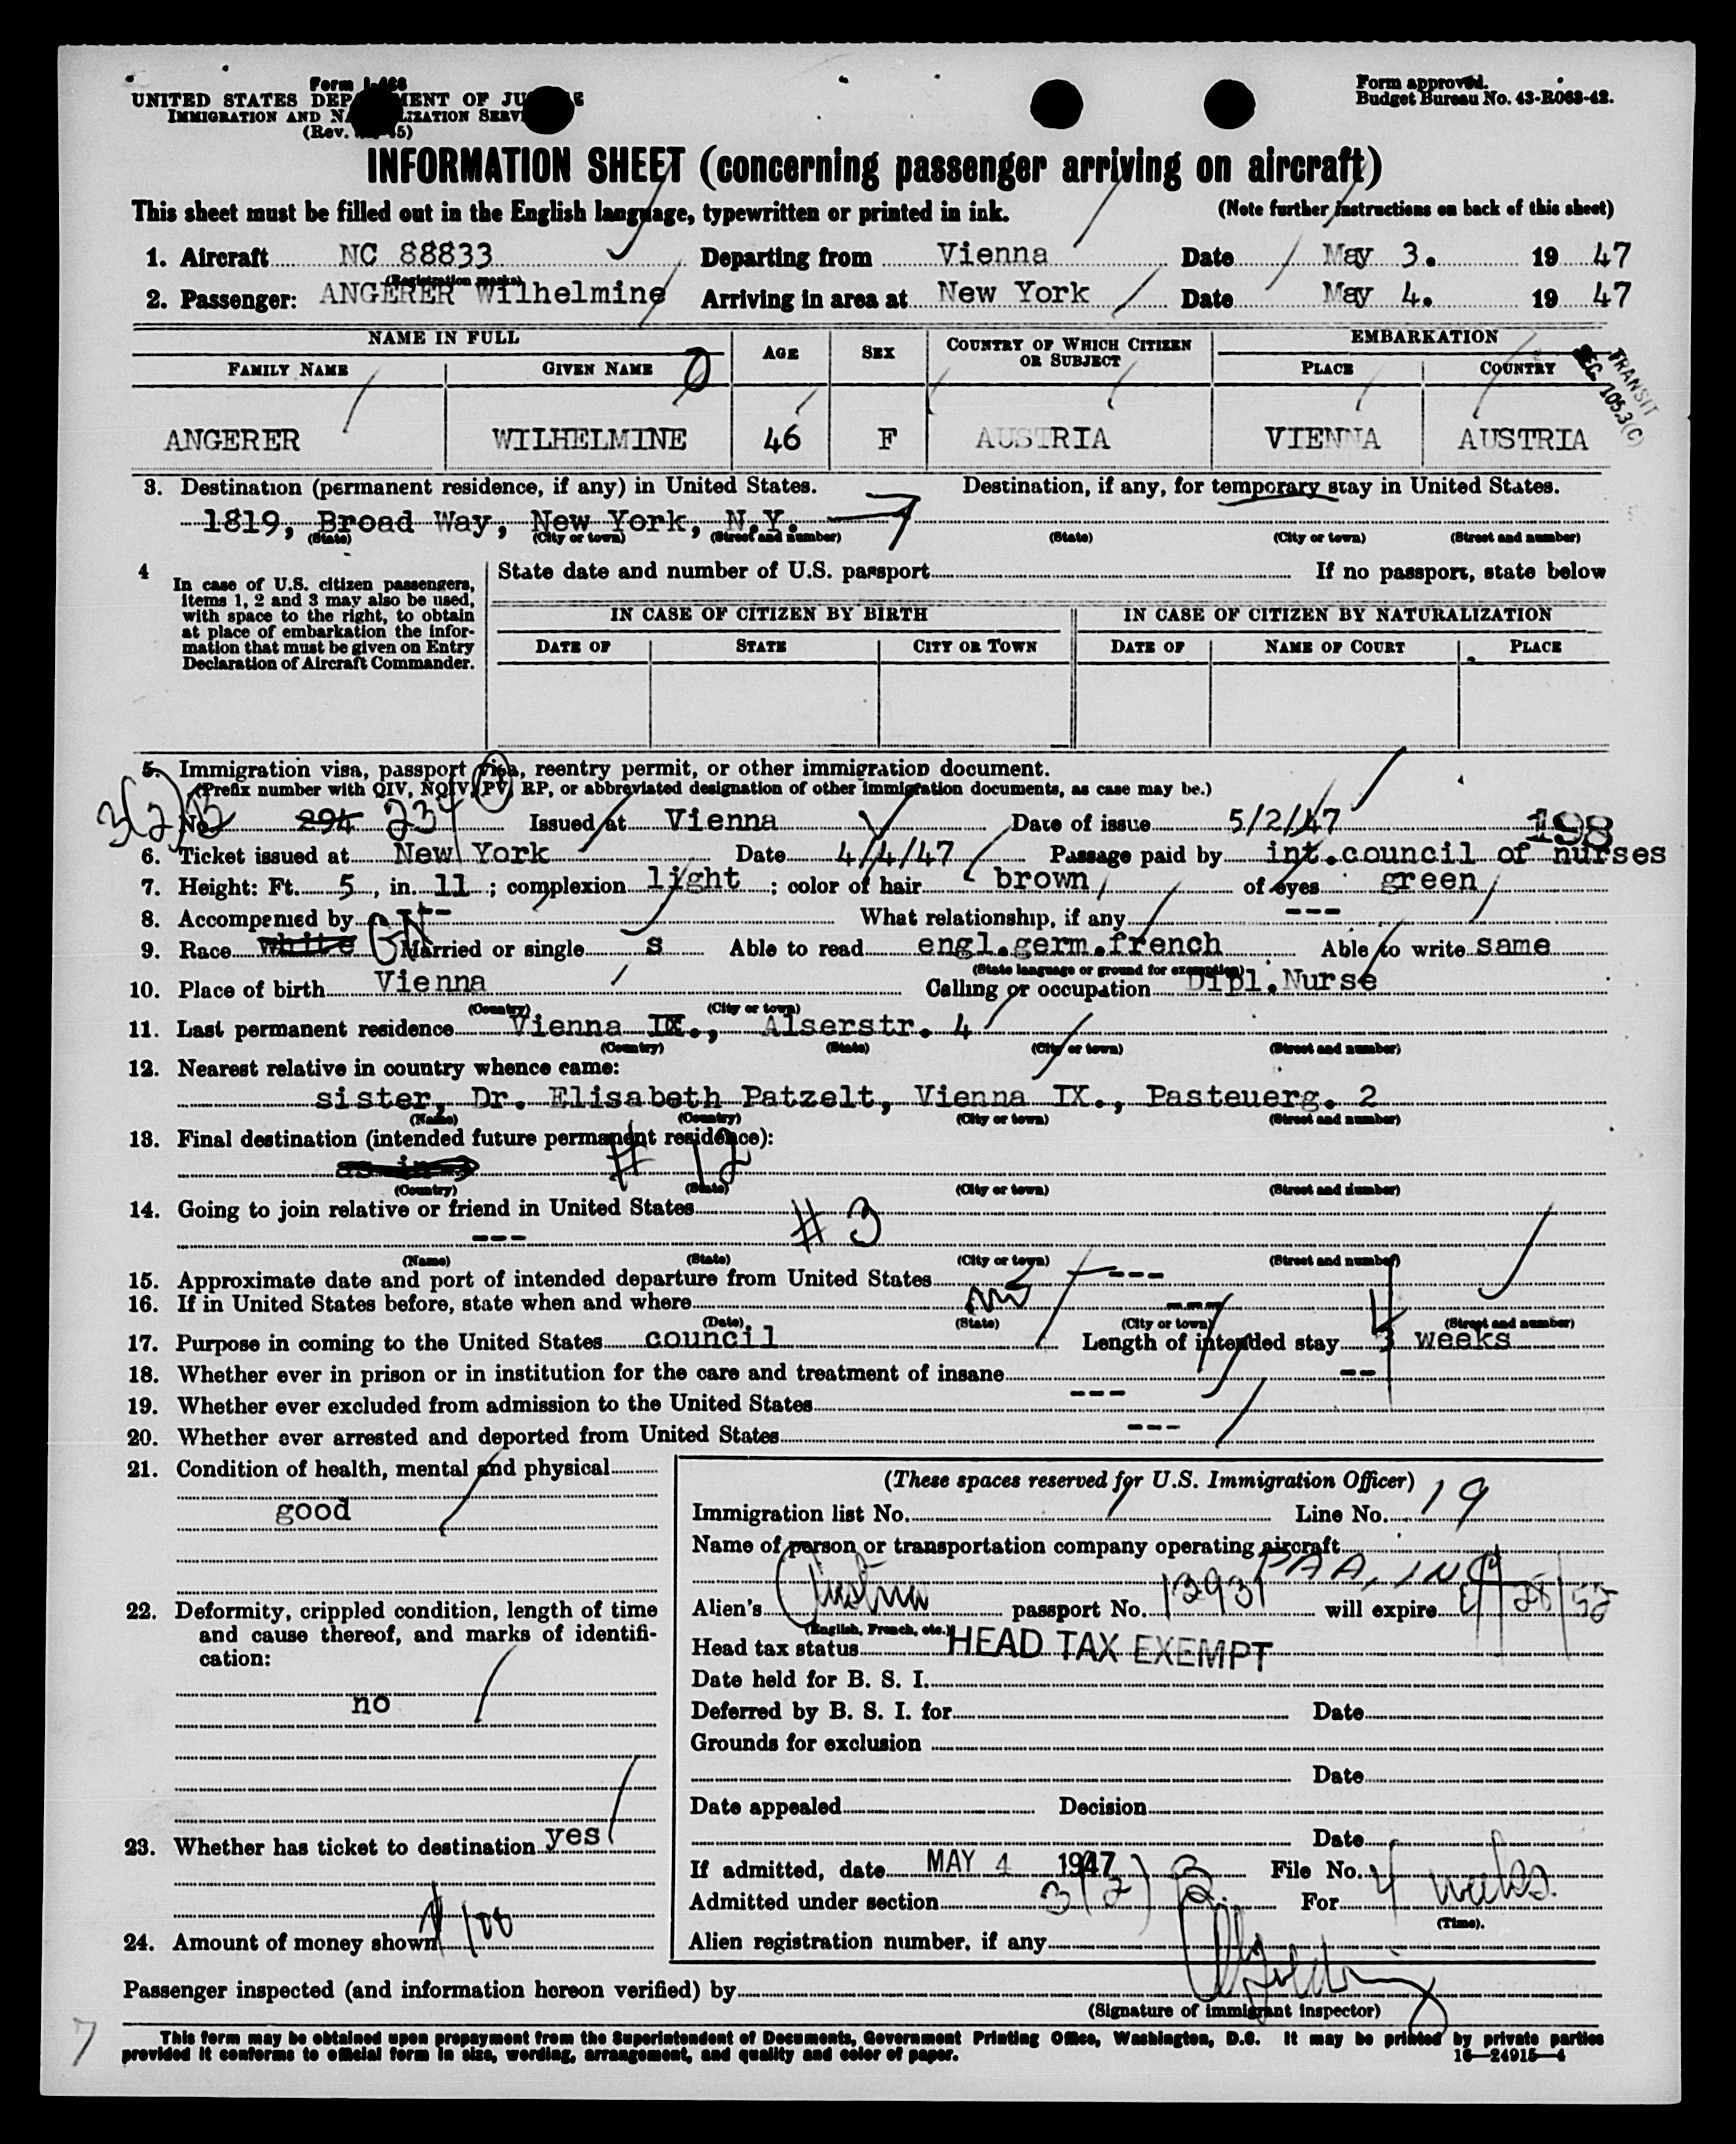 Form I-466
UNITED STATES DEPARTMENT OF JUSTICE
IMMIGRATION AND NATURALIZATION SERVICE
(Rev. 5)
Form approved.
Budget Bureau No. 43-R063-42.
INFORMATION SHEET (concerning passenger arriving on aircraft)
This sheet must be filled out in the English language, typewritten or printed in ink. (Note further instructions on back of this sheet)
1. Aircraft NC 88833 Departing from Vienna Date May 3. 19 47
(Registration marks)
2. Passenger: ANGERER Wilhelmine Arriving in area at New York Date May 4. 19 47
NAME IN FULL AGE SEX COUNTRY OF WHICH CITIZEN OR SUBJECT EMBARKATION
FAMILY NAME GIVEN NAME PLACE COUNTRY
TRANSIT
SEC. 105.3(C)
ANGERER WILHELMINE 46 F AUSTRIA VIENNA AUSTRIA
3. Destination (permanent residence, if any) in United States. Destination, if any, for temporary stay in United States.
1819, Broad Way, New York, N.Y.
(State) (City or town) (Street and number) (State) (City or town) (Street and number)
4 In case of U.S. citizen passengers, items 1, 2 and 3 may also be used, with space to the right, to obtain at place of embarkation the information that must be given on Entry Declaration of Aircraft Commander.
State date and number of U.S. passport If no passport, state below
IN CASE OF CITIZEN BY BIRTH IN CASE OF CITIZEN BY NATURALIZATION
DATE OF STATE CITY OR TOWN DATE OF NAME OF COURT PLACE
5. Immigration visa, passport visa, reentry permit, or other immigration document.
(Prefix number with QIV, NQIV, PV, RP, or abbreviated designation of other immigration documents, as case may be.)
3(2)B No. 294 Issued at Vienna Date of issue 5/2/47 198
6. Ticket issued at New York Date 4/4/47 Passage paid by int.council of nurses
7. Height: Ft. 5, in. 11; complexion light; color of hair brown of eyes green
8. Accompanied by --- What relationship, if any ---
9. Race white Married or single s Able to read engl.germ.french Able to write same
(State language or ground for exemption)
10. Place of birth Vienna Calling or occupation Dipl.Nurse
(Country) (City or town)
11. Last permanent residence Vienna IX., Alserstr. 4
(Country) (State) (City or town) (Street and number)
12. Nearest relative in country whence came:
sister, Dr. Elisabeth Patzelt, Vienna IX., Pasteuerg. 2
(Name) (Country) (City or town) (Street and number)
13. Final destination (intended future permanent residence):
as in 3 # 12
(Country) (State) (City or town) (Street and number)
14. Going to join relative or friend in United States
--- # 3
(Name) (State) (City or town) (Street and number)
15. Approximate date and port of intended departure from United States ---
16. If in United States before, state when and where no ---
(Date) (State) (City or town) (Street and number)
17. Purpose in coming to the United States council Length of intended stay 4 weeks
18. Whether ever in prison or in institution for the care and treatment of insane ---
19. Whether ever excluded from admission to the United States ---
20. Whether ever arrested and deported from United States ---
21. Condition of health, mental and physical
good
22. Deformity, crippled condition, length of time and cause thereof, and marks of identification:
no
23. Whether has ticket to destination yes
24. Amount of money shown $100
(These spaces reserved for U.S. Immigration Officer)
Immigration list No. Line No. 19
Name of person or transportation company operating aircraft
PAA, INC
Alien's Austrian passport No. 13931 will expire
(English, French, etc.)
Head tax status HEAD TAX EXEMPT
Date held for B. S. I.
Deferred by B. S. I. for Date
Grounds for exclusion
Date
Date appealed Decision
Date
If admitted, date MAY 4 1947 File No.
Admitted under section 3(2)B For 4 weeks.
(Time).
Alien registration number, if any
Passenger inspected (and information hereon verified) by
(Signature of immigrant inspector)
7
This form may be obtained upon prepayment from the Superintendent of Documents, Government Printing Office, Washington, D.C. It may be printed by private parties
provided it conforms to official form in size, wording, arrangement, and quality and color of paper. 16—24915-4